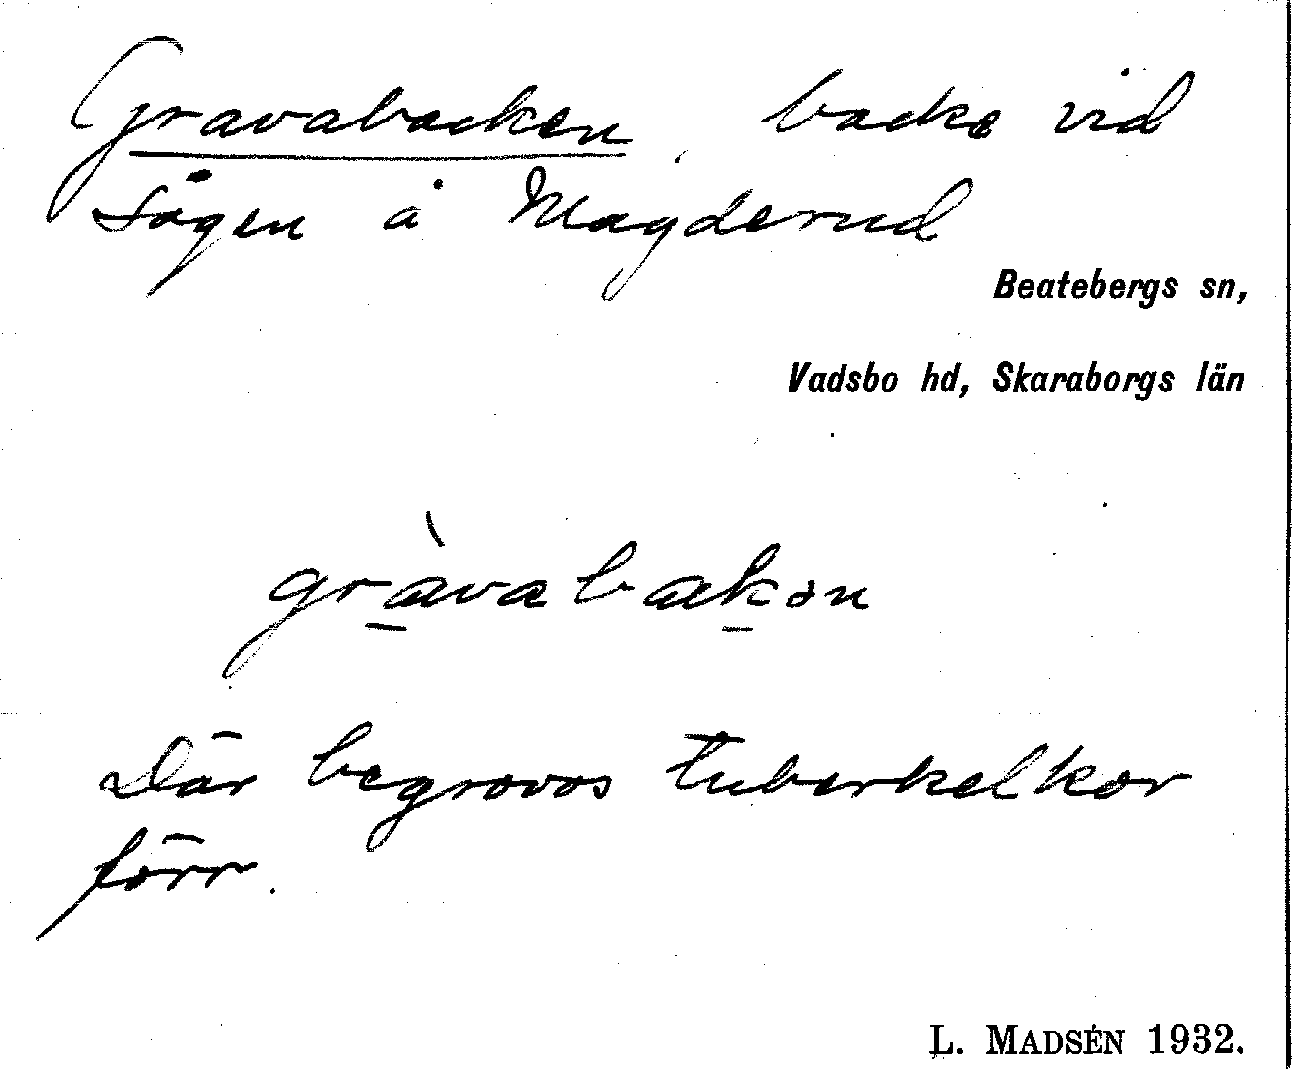 Gravabacken, backe vid
Sågen å Magderud
Beatebergs sn,
Vadsbo hd, Skaraborgs län
gràvabakən
Där begrovos tuberkelkor
förr.
L. MADSÉN 1932.